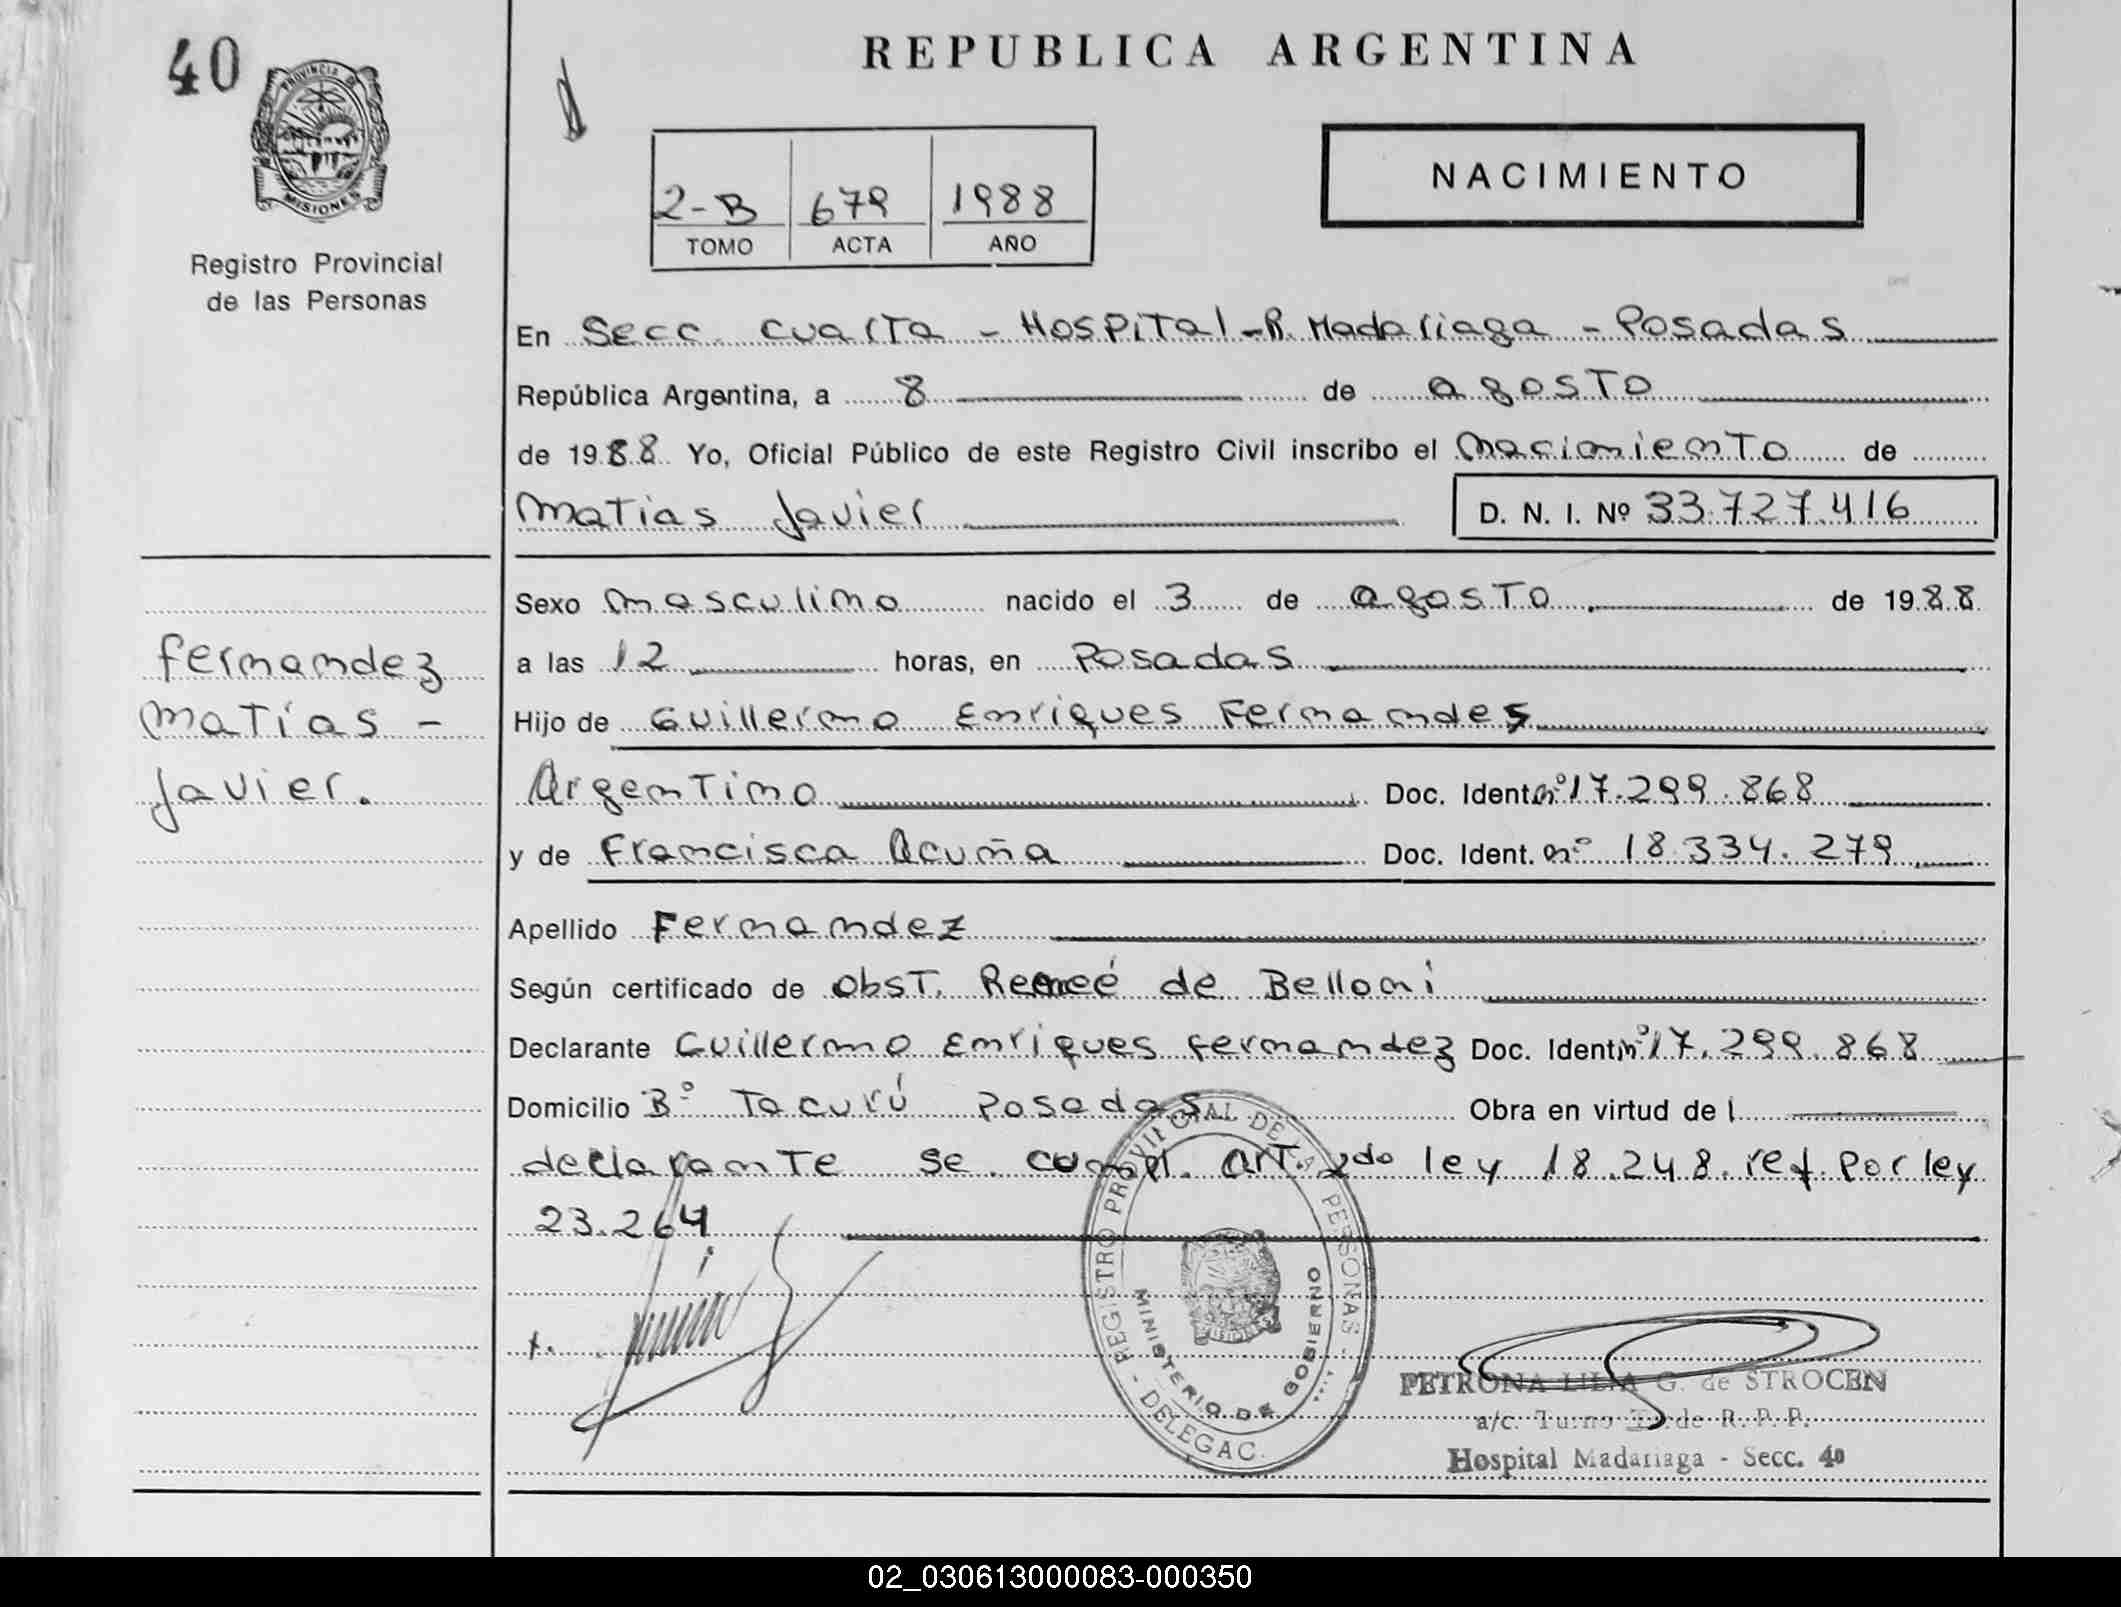 40
PROVINCIA DE
MISIONES
Registro Provincial
de las Personas
REPUBLICA ARGENTINA
NACIMIENTO
2-B 679 1988
TOMO ACTA AÑO
En Secc. cuarta - Hospital - R. Madariaga - Posadas
República Argentina, a 8 de agosto
de 1988 Yo, Oficial Público de este Registro Civil inscribo el nacimiento de
Matias Javier D. N. I. Nº 33.727.416
Sexo masculino nacido el 3 de agosto de 1988
a las 12 horas, en Posadas
Hijo de Guillermo Enriques Fernandes
Argentino Doc. Ident. nº 17.299.868
y de Francisca Acuña Doc. Ident. nº 18.334.279
Apellido Fernandez
Según certificado de Obst. Reneé de Belloni
Declarante Guillermo Enriques Fernandez Doc. Ident. nº 17.299.868
Domicilio Bº Tacurú Posadas Obra en virtud de l
declarante se compl. art. 2do ley 18.248. ref. por ley
23.264
Fernandez
Matías -
Javier.
REGISTRO PROVINCIAL DE LA PERSONAS
MINISTERIO DE GOBIERNO
DELEGAC.
PETRONA LILA G. de STROCEN
a/c. Turno Tarde R. P. P.
Hospital Madariaga - Secc. 4a
02_030613000083-000350